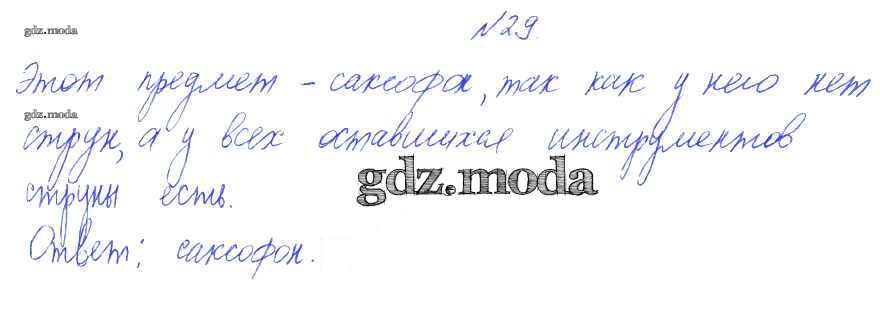 gdz.moda
№29.
Этот предмет – саксофон, так как у него нет
gdz.moda
струн, а у всех оставшихся инструментов
gdz.moda
струны есть.
Ответ: саксофон.